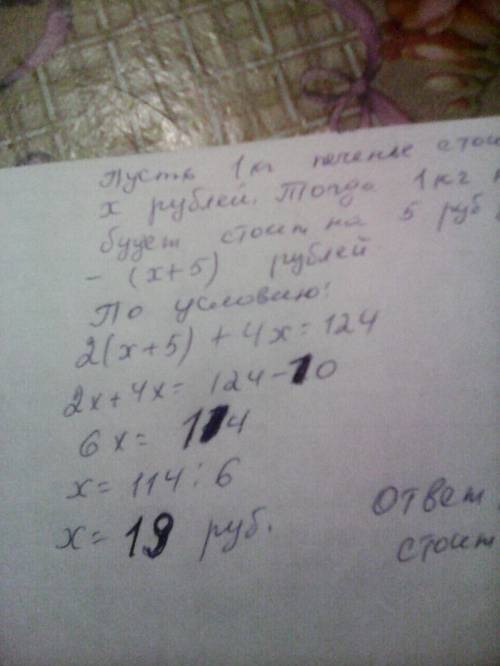 Пусть 1 кг печенье
х рублей. Тогда 1 кг
будет стоит на 5 руб
- (х+5) рублей
По условию:
2(х+5) + 4х = 124
2х+4х= 124-10
6х= 114
х= 114:6
х= 19 руб.
Ответ
стоит